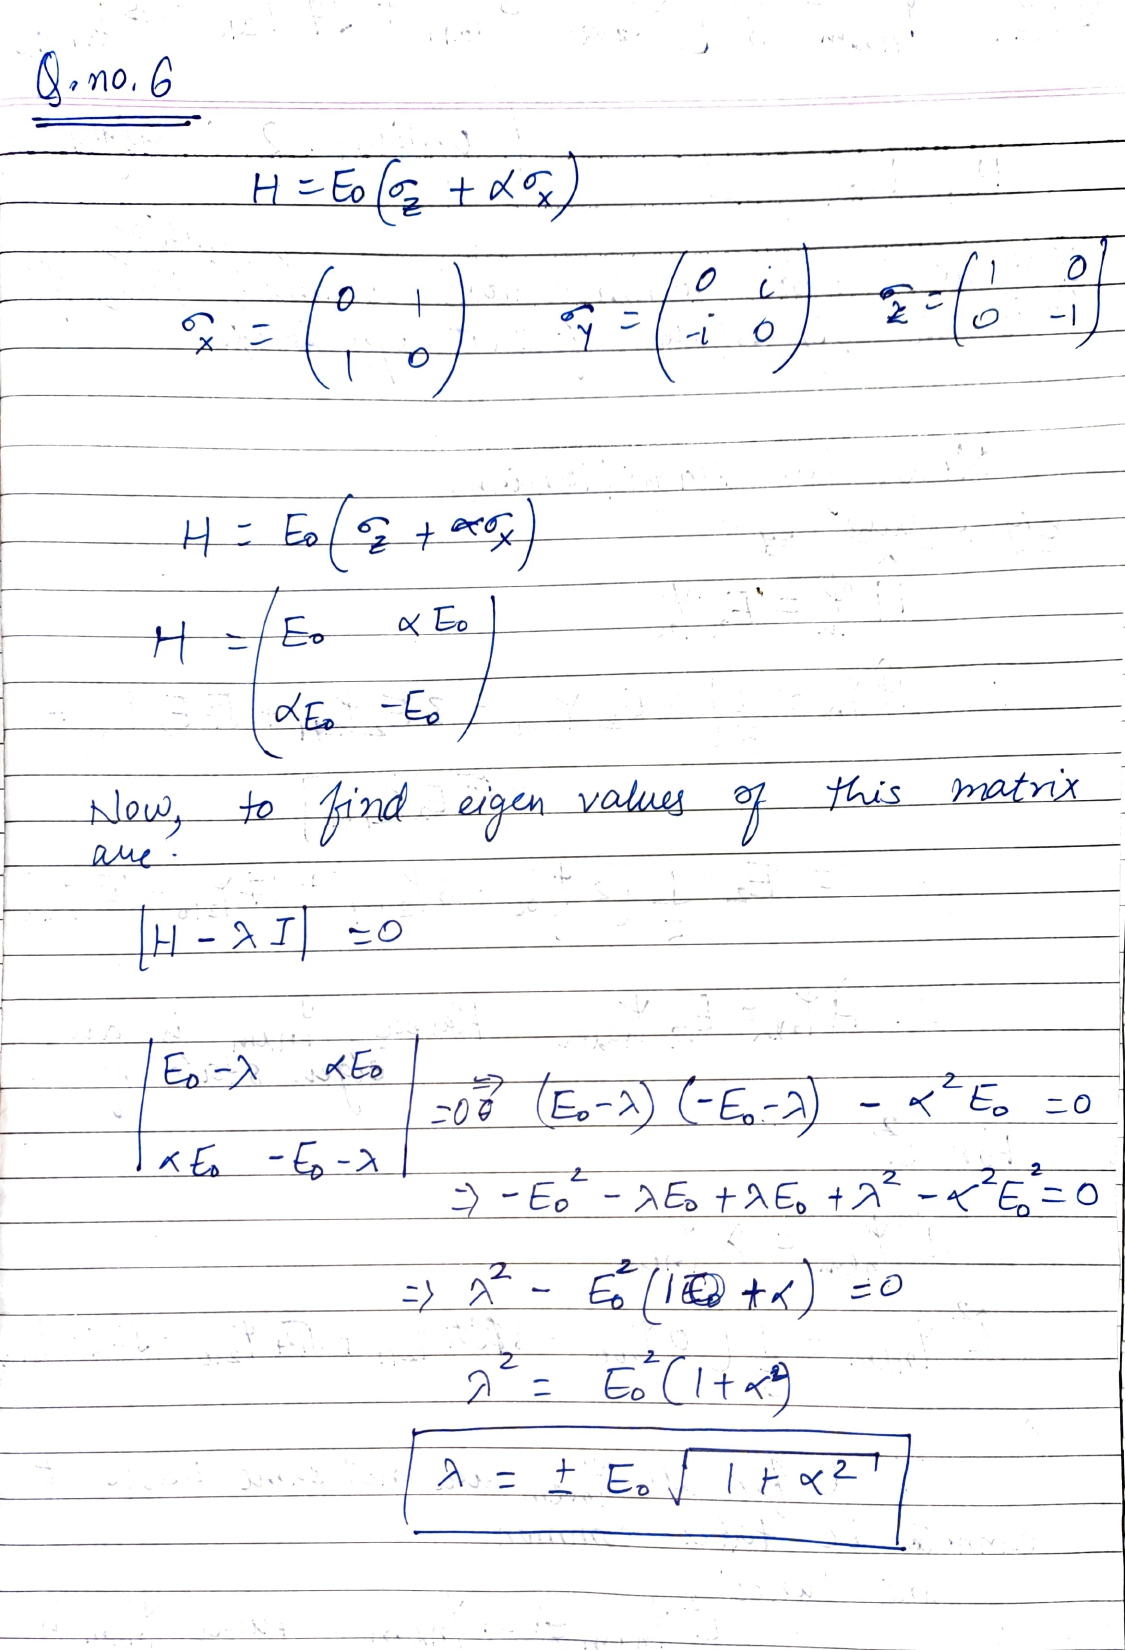 Q. no. 6
H = E₀(σ_z + ασ_x)
σ_x = (0 1; 1 0) σ_y = (0 i; -i 0) σ_z = (1 0; 0 -1)
H = E₀(σ_z + ασ_x)
H = (E₀ αE₀; αE₀ -E₀)
Now, to find eigen values of this matrix
are.
|H - λI| = 0
|E₀-λ αE₀; αE₀ -E₀-λ| = 0 ⇒ (E₀-λ)(-E₀-λ) - α²E₀ = 0
⇒ -E₀² - λE₀ + λE₀ + λ² - α²E₀² = 0
⇒ λ² - E₀²(1 + α) = 0
λ² = E₀²(1 + α²)
λ = ± E₀ √(1 + α²)